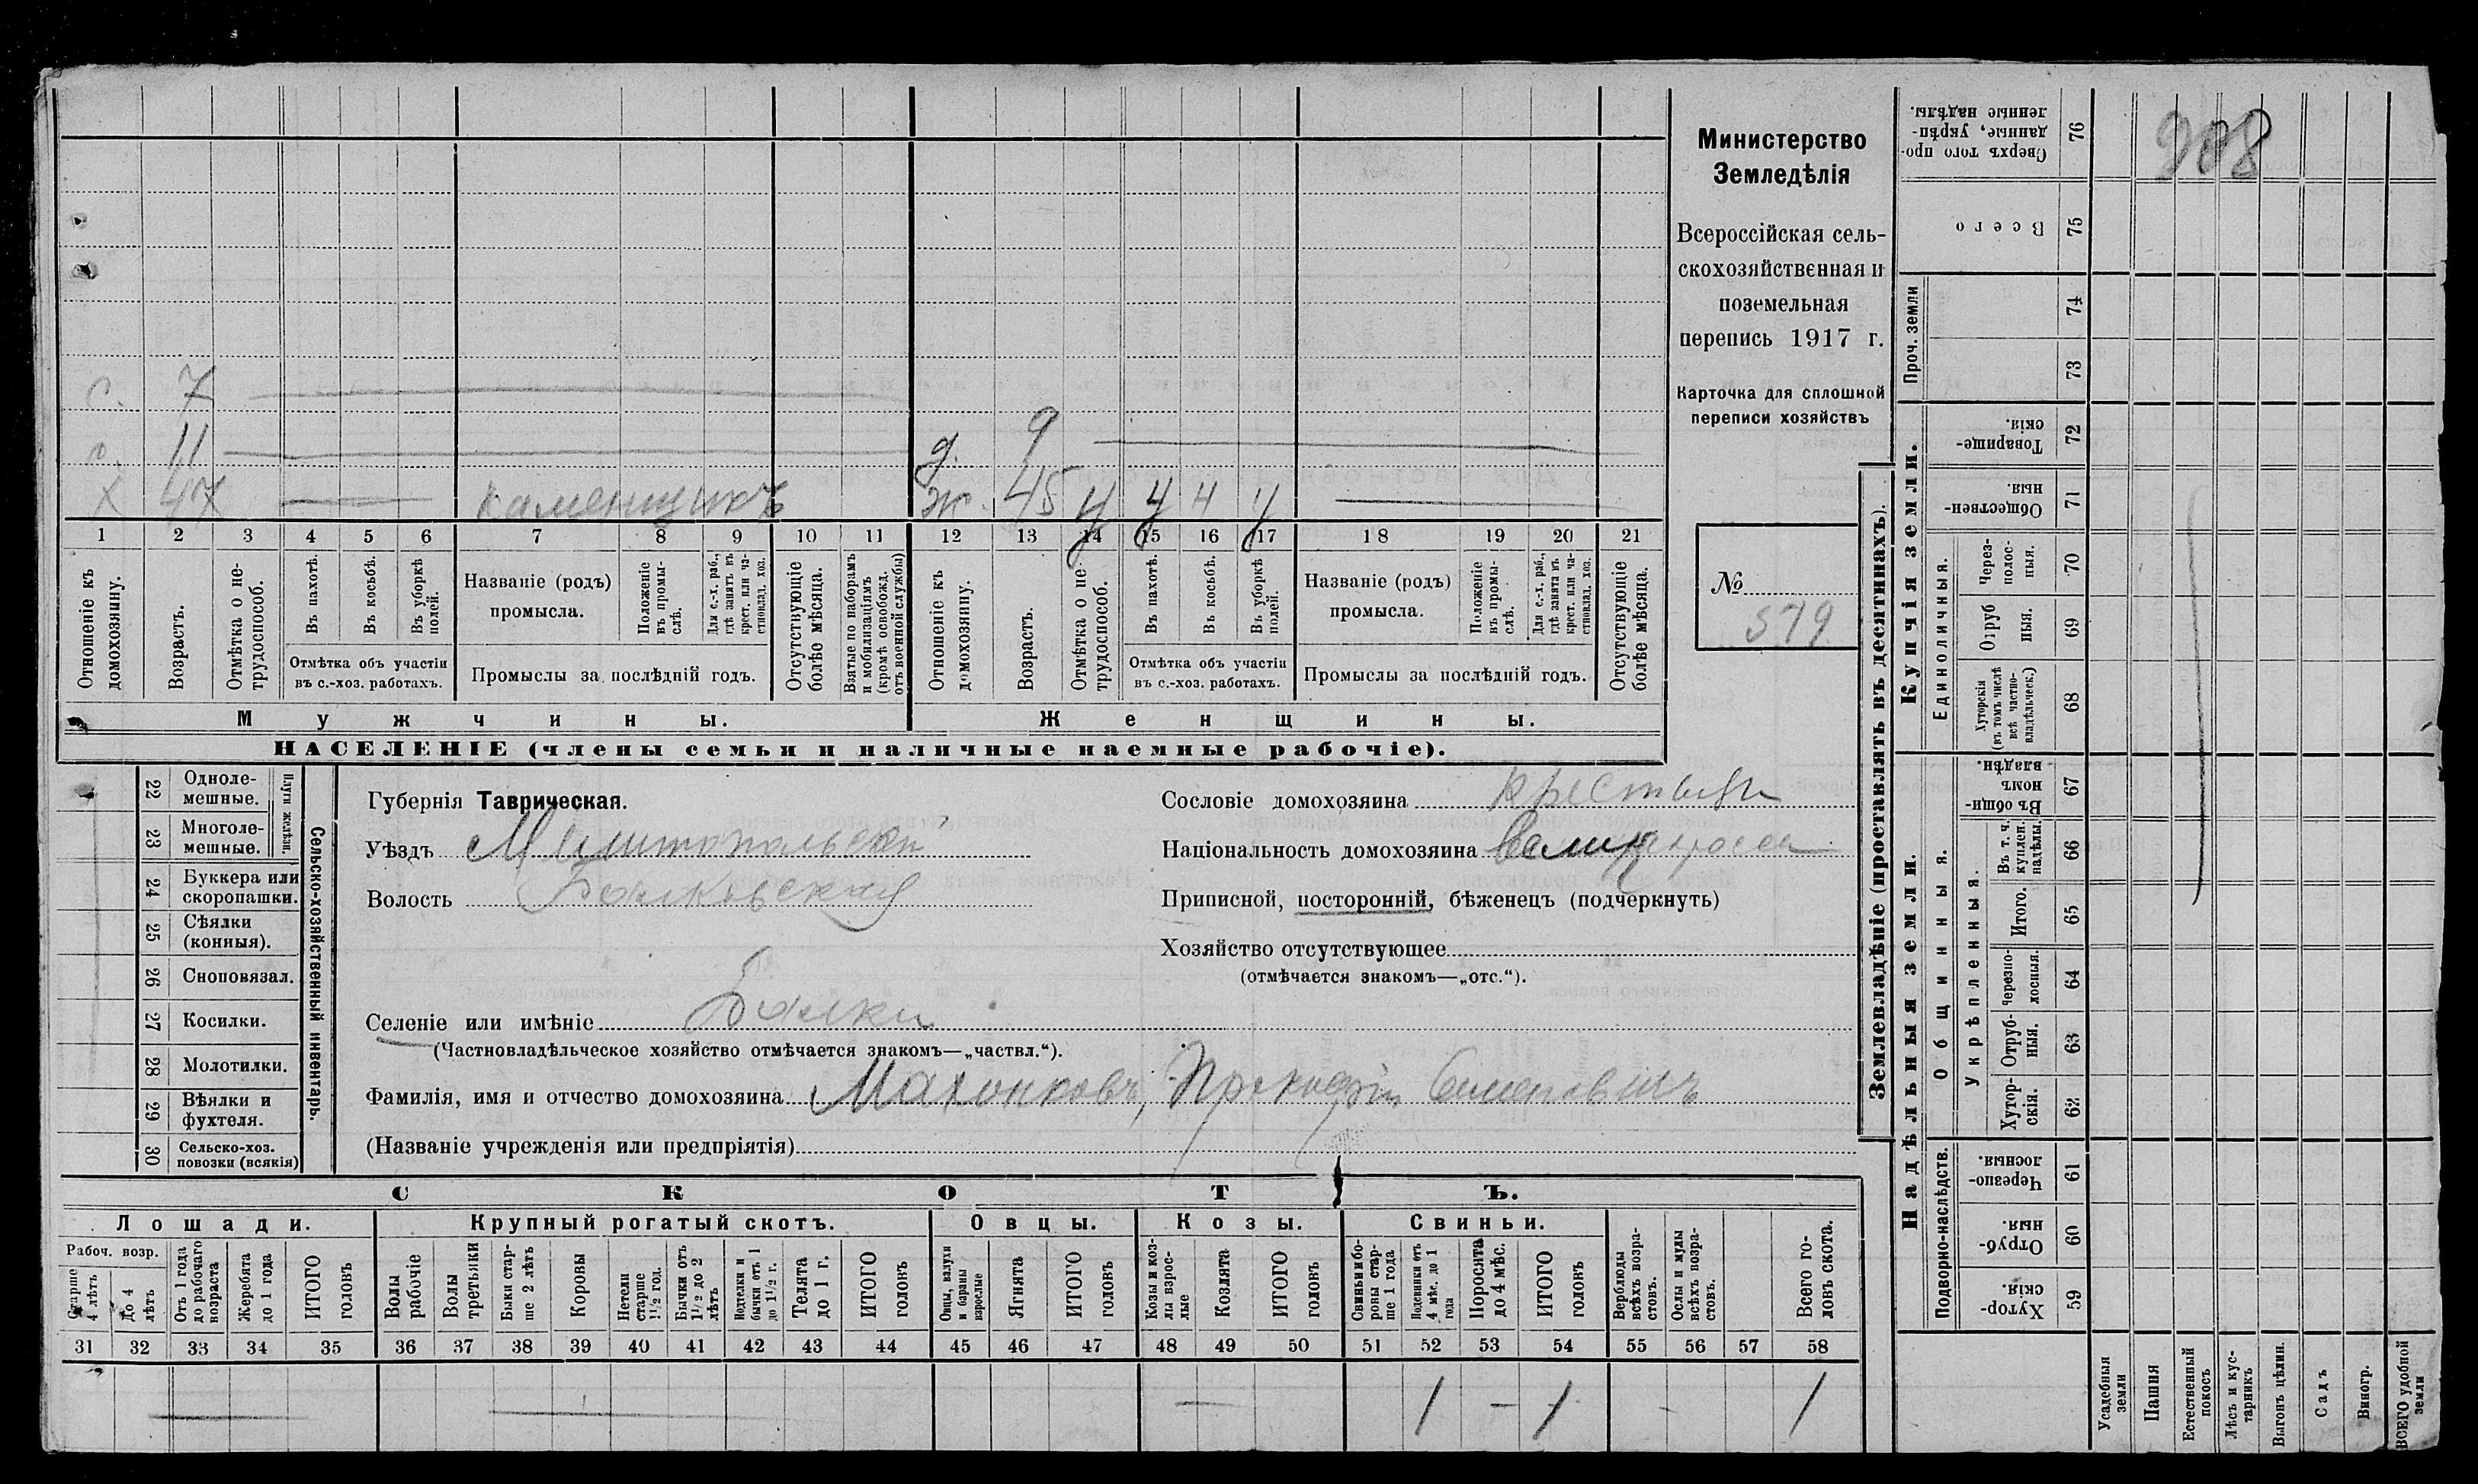 908
Министерство
Земледѣлія
Всероссійская сель-
скохозяйственная и
поземельная
перепись 1917 г.
Карточка для сплошной
переписи хозяйствъ
№
579
с. 7
с. 11
д. 9
х 47 каменщикъ ж. 45 ч ч ч ч
1 2 3 4 5 6 7 8 9 10 11 12 13 14 15 16 17 18 19 20 21
Отношеніе къ домохозяину.
Возрастъ.
Отмѣтка о не-трудоспособ.
Въ пахотѣ.
Въ косьбѣ.
Въ уборкѣ полей.
Отмѣтка объ участіи
въ с.-хоз. работахъ.
Названіе (родъ)
промысла.
Положеніе въ промы-слѣ.
Для с.-х. раб., гдѣ занятъ въ крест. или ча-стновлад. хоз.
Промыслы за послѣдній годъ.
Отсутствующіе болѣе мѣсяца.
Взятые по наборамъ и мобилизаціямъ (кромѣ освобожд. отъ военной службы)
Отношеніе къ домохозяину.
Возрастъ.
Отмѣтка о не-трудоспособ.
Въ пахотѣ.
Въ косьбѣ.
Въ уборкѣ полей.
Отмѣтка объ участіи
въ с.-хоз. работахъ.
Названіе (родъ)
промысла.
Положеніе въ промы-слѣ.
Для с.-х. раб., гдѣ занята въ крест. или ча-стновлад. хоз.
Промыслы за послѣдній годъ.
Отсутствующіе болѣе мѣсяца.
Мужчины.
Женщины.
НАСЕЛЕНІЕ (члены семьи и наличные наемные рабочіе).
22 Одноле-мешные.
23 Многоле-мешные.
Плуги желѣзн.
24 Буккера или скоропашки.
25 Сѣялки (конныя).
26 Сноповязал.
27 Косилки.
28 Молотилки.
29 Вѣялки и фухтеля.
30 Сельско-хоз. повозки (всякія)
Сельско-хозяйственный инвентарь.
Губернія Таврическая.
Уѣздъ Мелитопольскій
Волость Балковская
Селеніе или имѣніе Балки
(Частновладѣльческое хозяйство отмѣчается знакомъ—„частвл.“).
Фамилія, имя и отчество домохозяина Махонковъ, Прокофій Семеновичъ
(Названіе учрежденія или предпріятія)
Сословіе домохозяина крестьян
Національность домохозяина Великоросси
Приписной, посторонній, бѣженецъ (подчеркнуть)
Хозяйство отсутствующее
(отмѣчается знакомъ—„отс.“).
СКОТЪ.
Лошади. Крупный рогатый скотъ. Овцы. Козы. Свиньи.
Рабоч. возр.
Старше 4 лѣтъ
До 4 лѣтъ
Отъ 1 года до рабочаго возраста
Жеребята до 1 года
ИТОГО головъ
Волы рабочіе
Волы третьяки
Быки стар-ше 2 лѣтъ
Коровы
Нетели старше 1½ год.
Бычки отъ 1½ до 2 лѣтъ
Подтелки и бычки отъ 1 до 1½ г.
Телята до 1 г.
ИТОГО головъ
Овцы, валухи и бараны взрослые
Ягнята
ИТОГО головъ
Козы и коз-лы взрос-лые
Козлята
ИТОГО головъ
Свиньи бо-ровы стар-ше 1 года
Подсвинки отъ 4 мѣс. до 1 года
Поросята до 4 мѣс.
ИТОГО головъ
Верблюды всѣхъ возра-стовъ.
Ослы и мулы всѣхъ возра-стовъ.
Всего го-ловъ скота.
31 32 33 34 35 36 37 38 39 40 41 42 43 44 45 46 47 48 49 50 51 52 53 54 55 56 57 58
1 – 1 – 1
Землевладѣніе (проставлять въ десятинахъ).
Надѣльныя земли.
Купчія земли.
Проч. земли
Подворно-наслѣдств.
Общинныя.
Укрѣпленныя.
Единоличныя.
Сверхъ того про-данные, укрѣп-ленные надѣлы. 76
Всего 75
74
73
Товарище-скія. 72
Обществен-ныя. 71
Через-полос-ныя. 70
Отруб ныя. 69
Хуторскія (въ томъ числѣ всѣ частно-владѣльческ.) 68
Въ общи-номъ владѣн. 67
Въ т. ч. куплен. надѣлы. 66
Итого. 65
Черезпо-лосныя. 64
Отруб-ныя. 63
Хутор-скія. 62
Черезпо-лосныя. 61
Отруб-ныя. 60
Хутор-скія. 59
Усадебныя земли
Пашня
Естественный покосъ
Лѣсъ и кус-тарникъ
Выгонъ цѣлин.
Садъ
Виногр.
ВСЕГО удобной земли